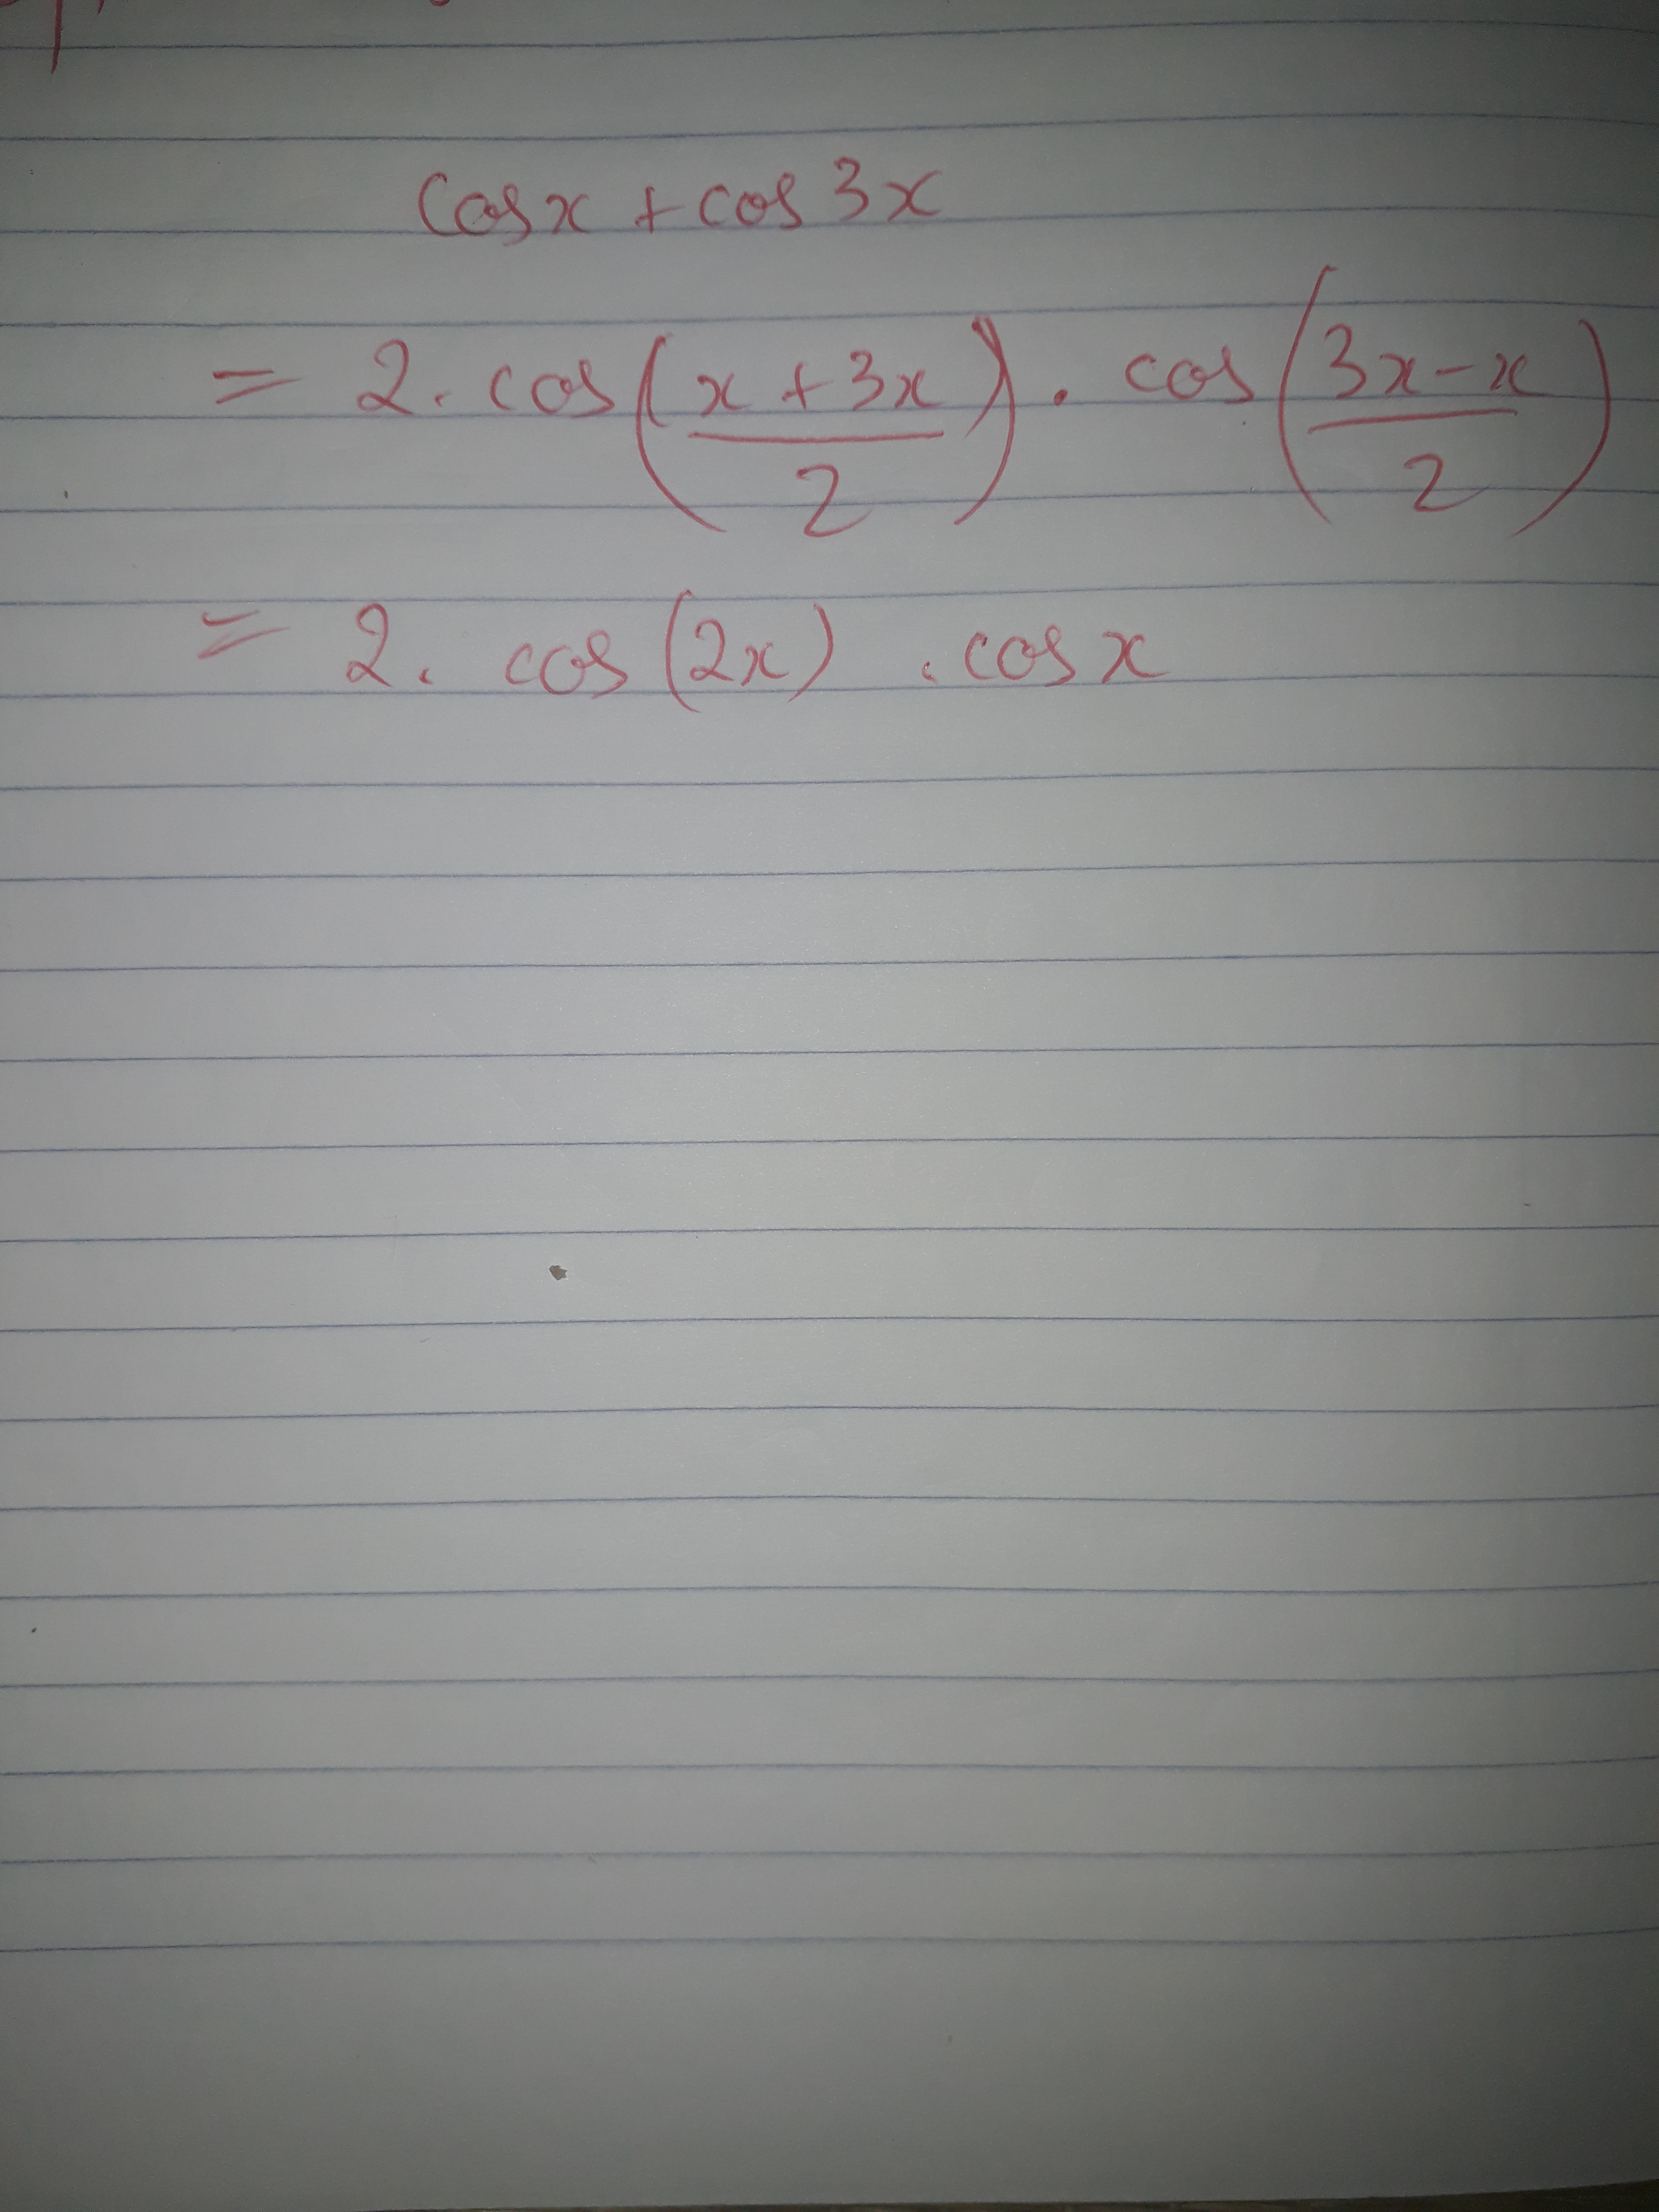 cosx + cos 3x
= 2. cos(x + 3x / 2) . cos(3x - x / 2)
= 2. cos(2x) . cos x